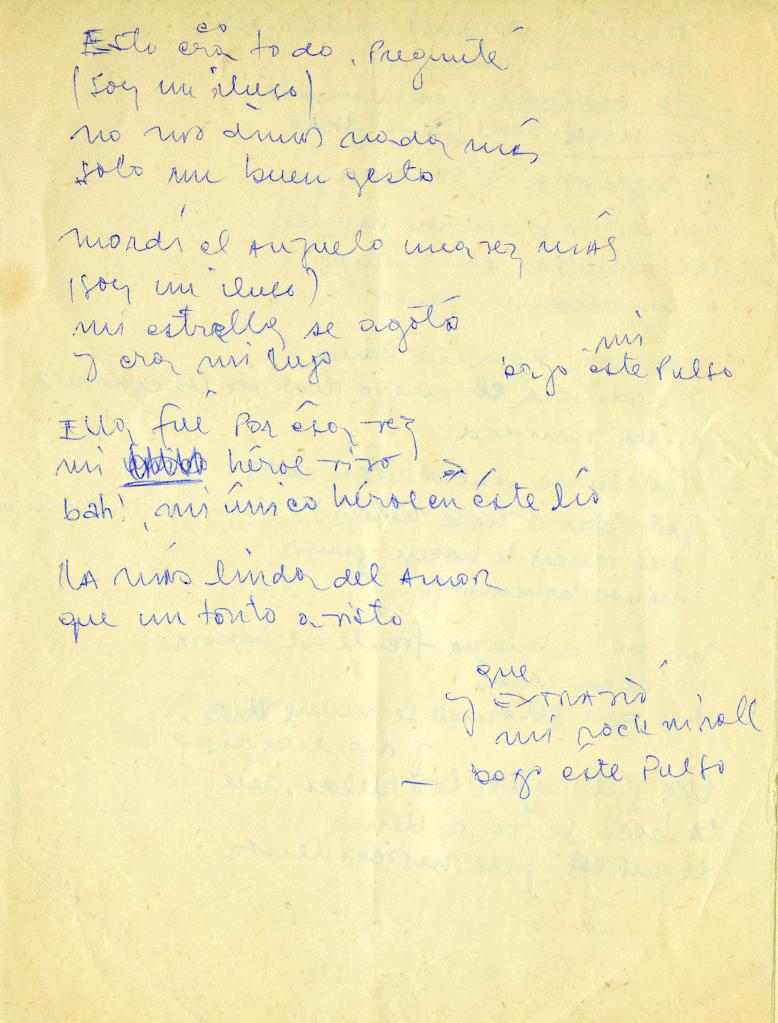 Esto era todo. Pregunté
(soy un iluso)
no nos dimos nada más
solo un buen gesto
Mordí el anzuelo una vez más
(soy un iluso)
mi estrella se agotó
y era mi lujo
mi
bajo éste Pulso
Ella fué Por ésa vez
mi héroe vivo
bah! , mi único héroe en éste lío
La más linda del Amor
que un tonto a visto
que
y EXTRAÑÓ
mi rock n roll
— bajo éste Pulso